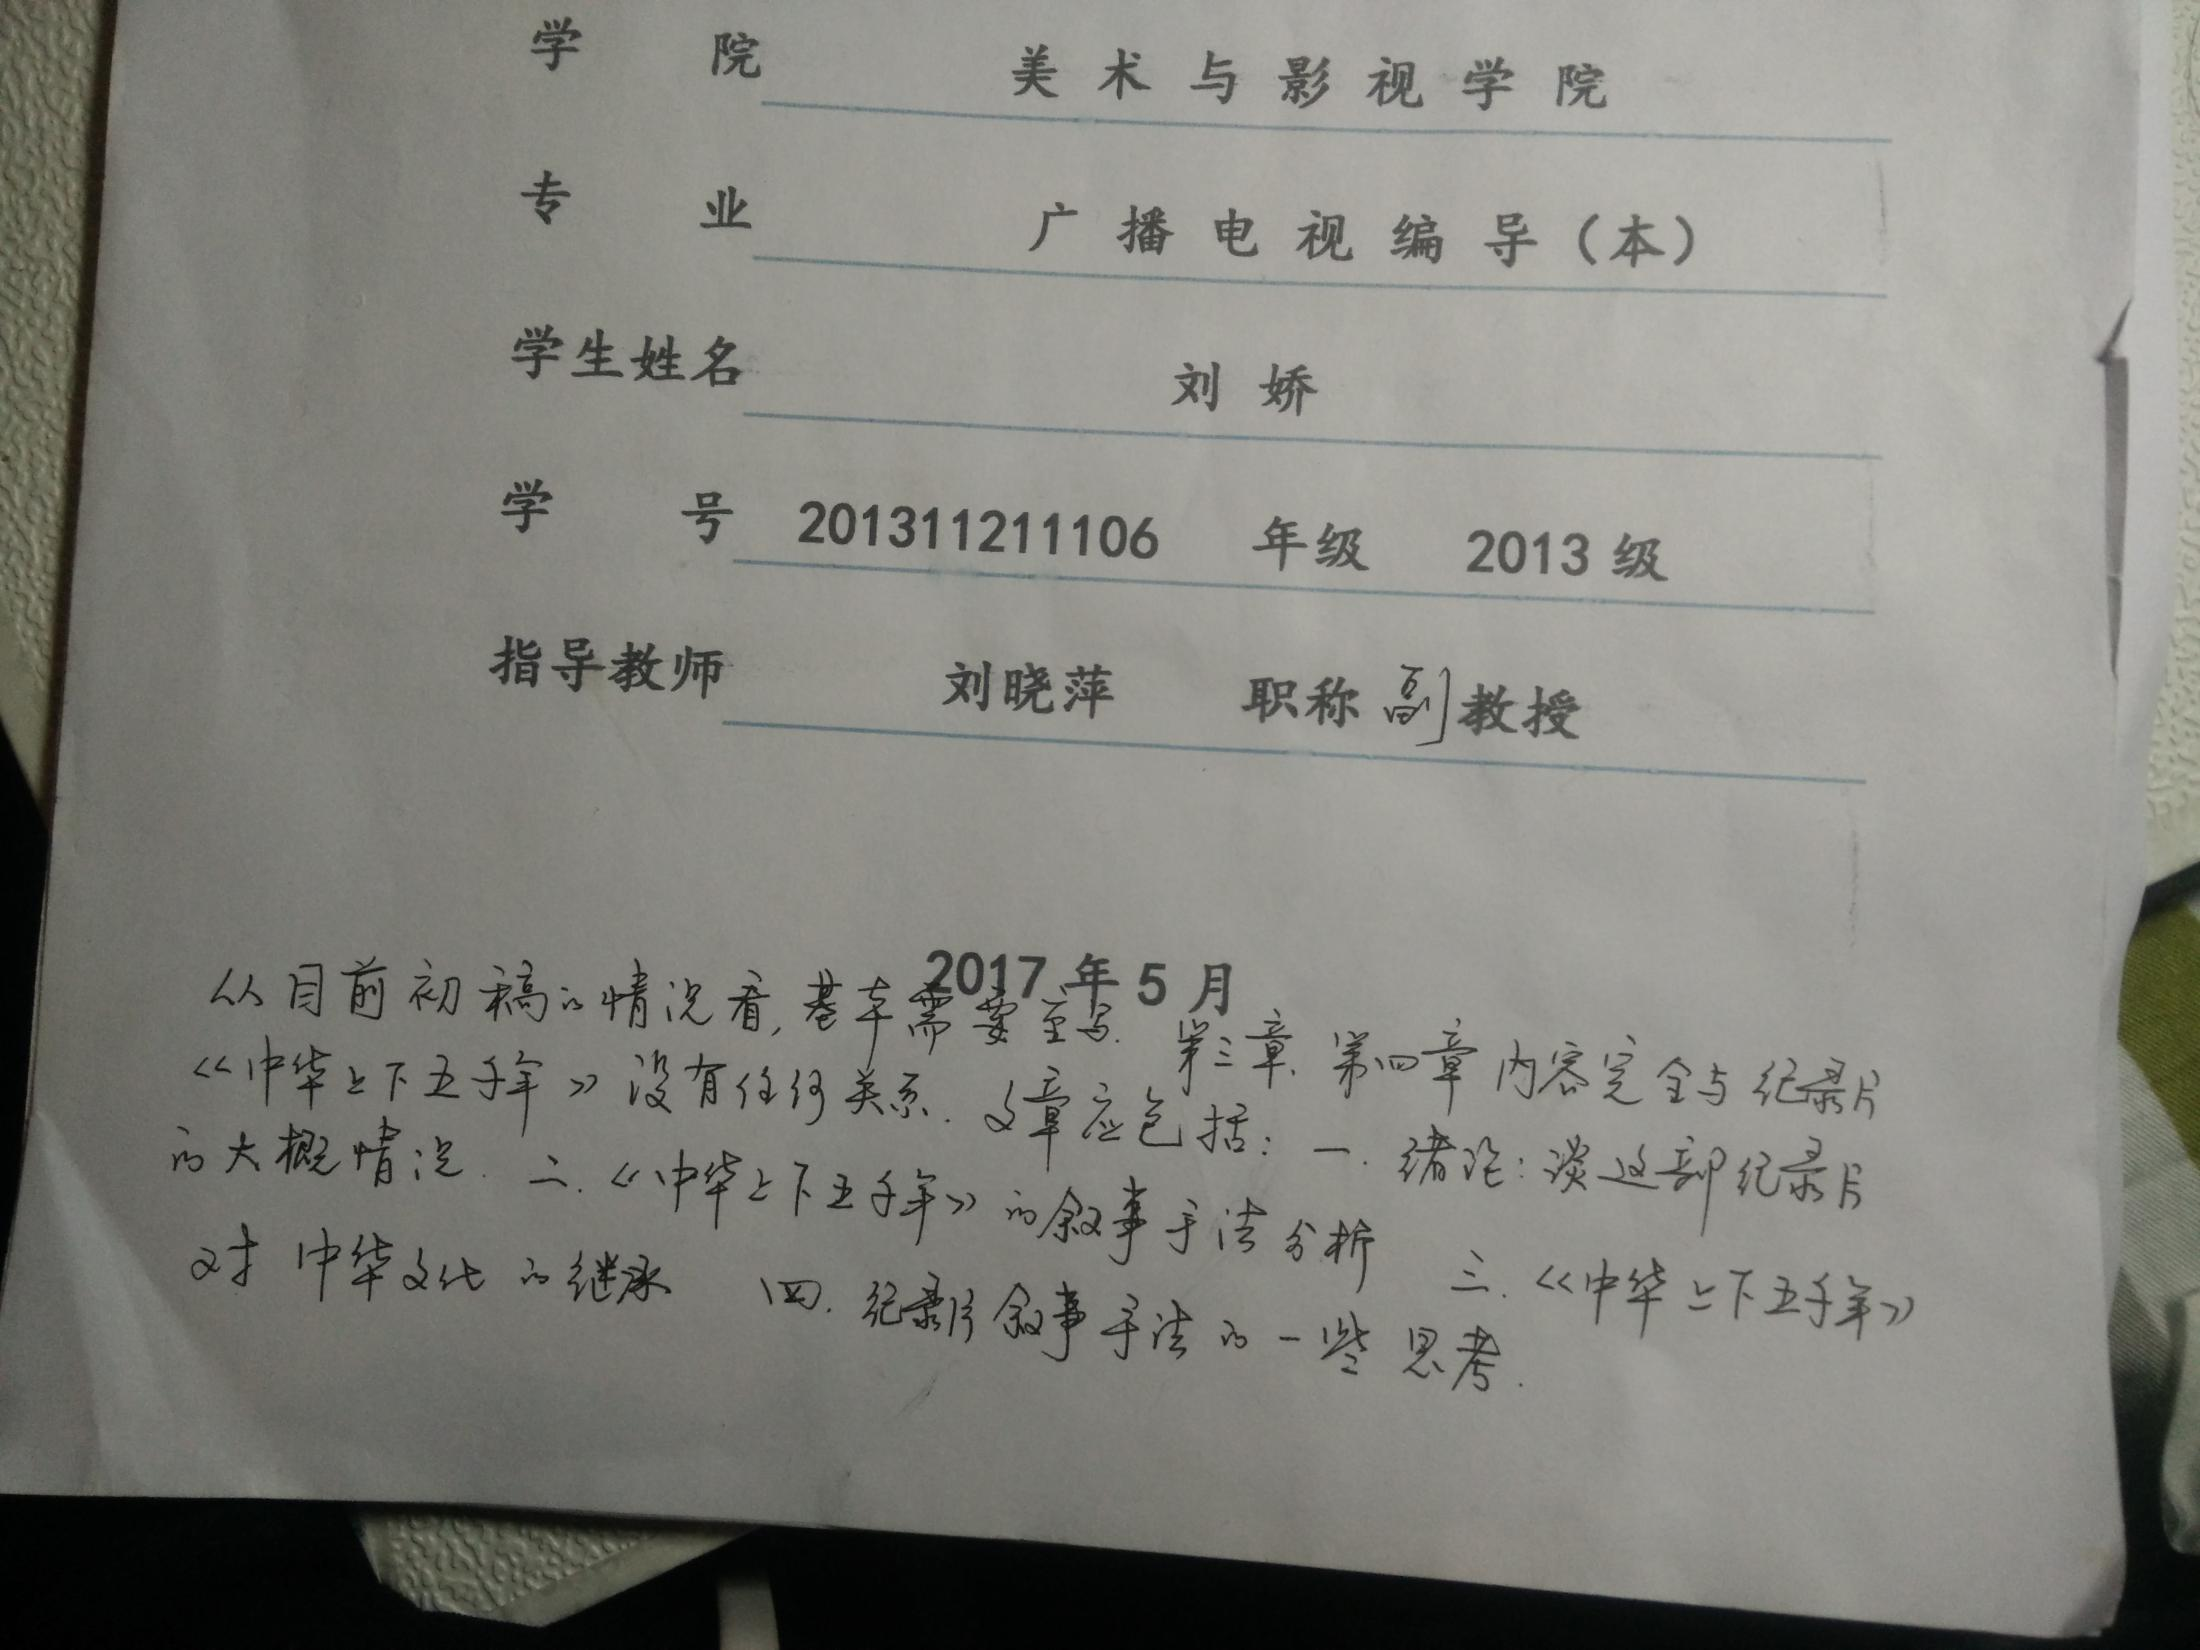 学 院 美术与影视学院
专 业 广播电视编导（本）
学生姓名 刘娇
学 号 201311211106 年级 2013级
指导教师 刘晓萍 职称 副教授
2017年5月
从目前初稿的情况看，基本需要重写. 第三章、第四章内容完全与纪录片
《中华上下五千年》没有任何关系. 文章应包括：一. 绪论：谈这部纪录片
的大概情况. 二.《中华上下五千年》的叙事手法分析 三.《中华上下五千年》
对中华文化的继承 四. 纪录片叙事手法的一些思考.